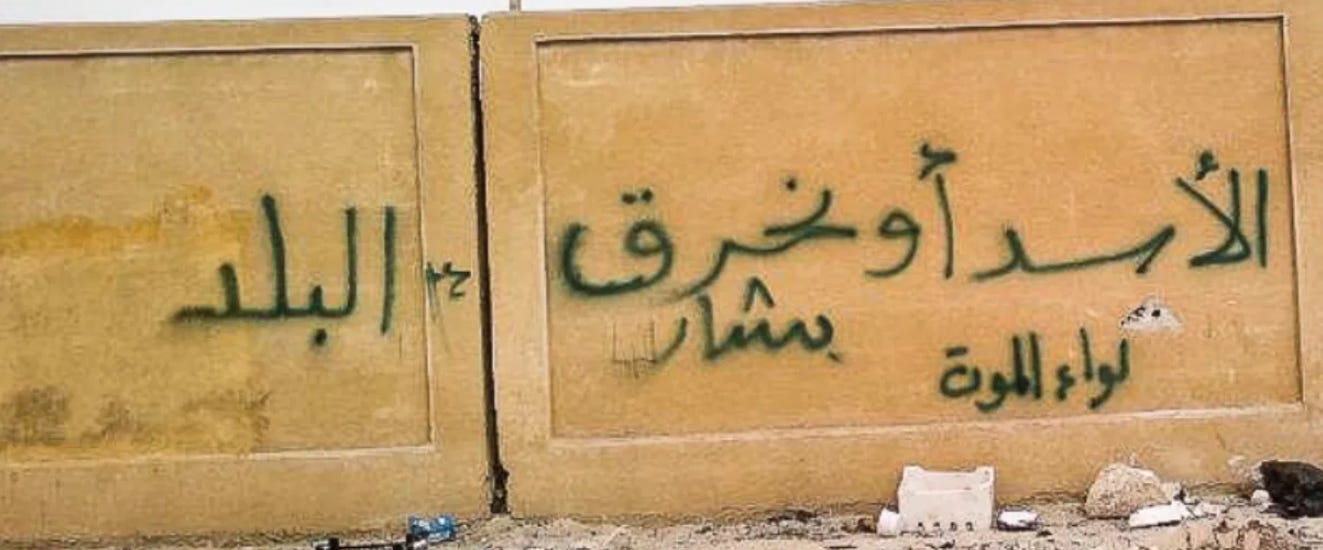 الأسد أو نحرق البلد
بشار
لواء الموت